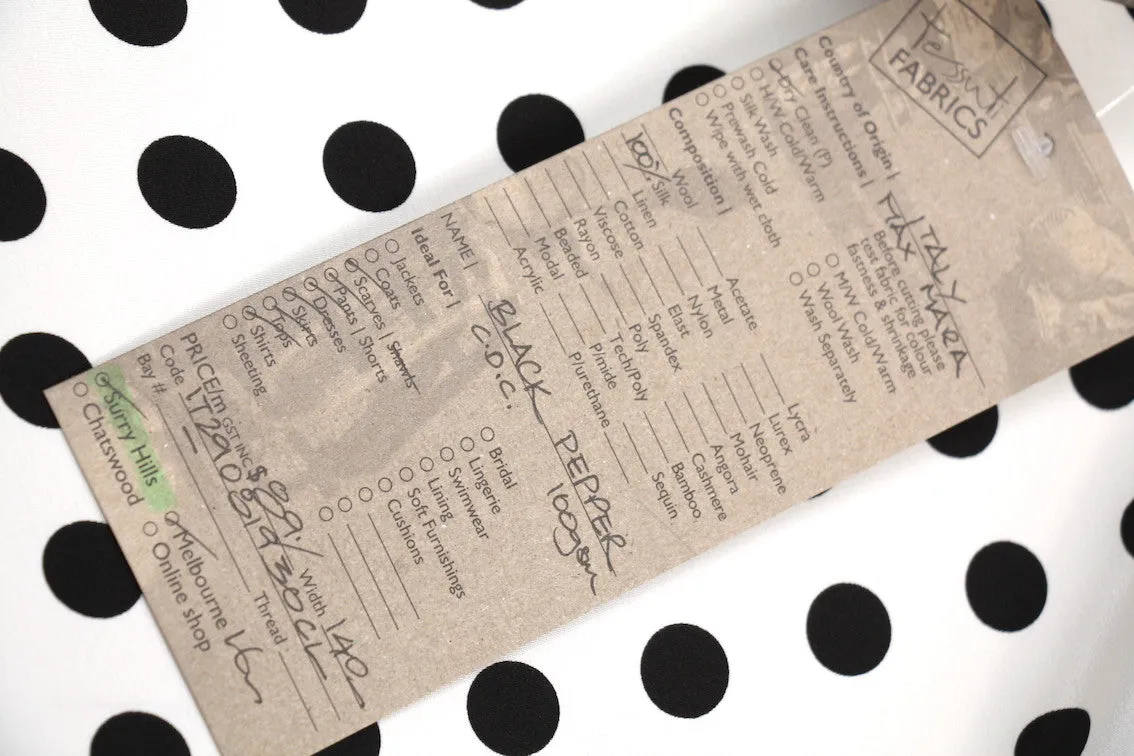 Tessuti
FABRICS
Country of Origin | ITALY
Care Instructions | MAX MARA
Dry Clean (P)
H/W Cold/Warm
Silk Wash
Prewash Cold
Wipe with wet cloth
Before cutting please
test fabric for colour
fastness & shrinkage
M/W Cold/Warm
Wool Wash
Wash Separately
Composition |
Wool
100% Silk
Linen
Cotton
Viscose
Rayon
Beaded
Modal
Acrylic
Acetate
Metal
Nylon
Elast
Spandex
Poly
Tech/Poly
P/mide
P/urethane
Lycra
Lurex
Neoprene
Mohair
Angora
Cashmere
Bamboo
Sequin
NAME | BLACK PEPPER
C.D.C. 100gsm
Ideal For |
Jackets
Coats
Scarves | Shawls
Pants | Shorts
Dresses
Skirts
Tops
Shirts
Sheeting
Bridal
Lingerie
Swimwear
Lining
Soft Furnishings
Cushions
PRICE/m GST INC $89./ Width 140
Code
Bay #
Thread
Surry Hills
Chatswood
Melbourne
Online shop